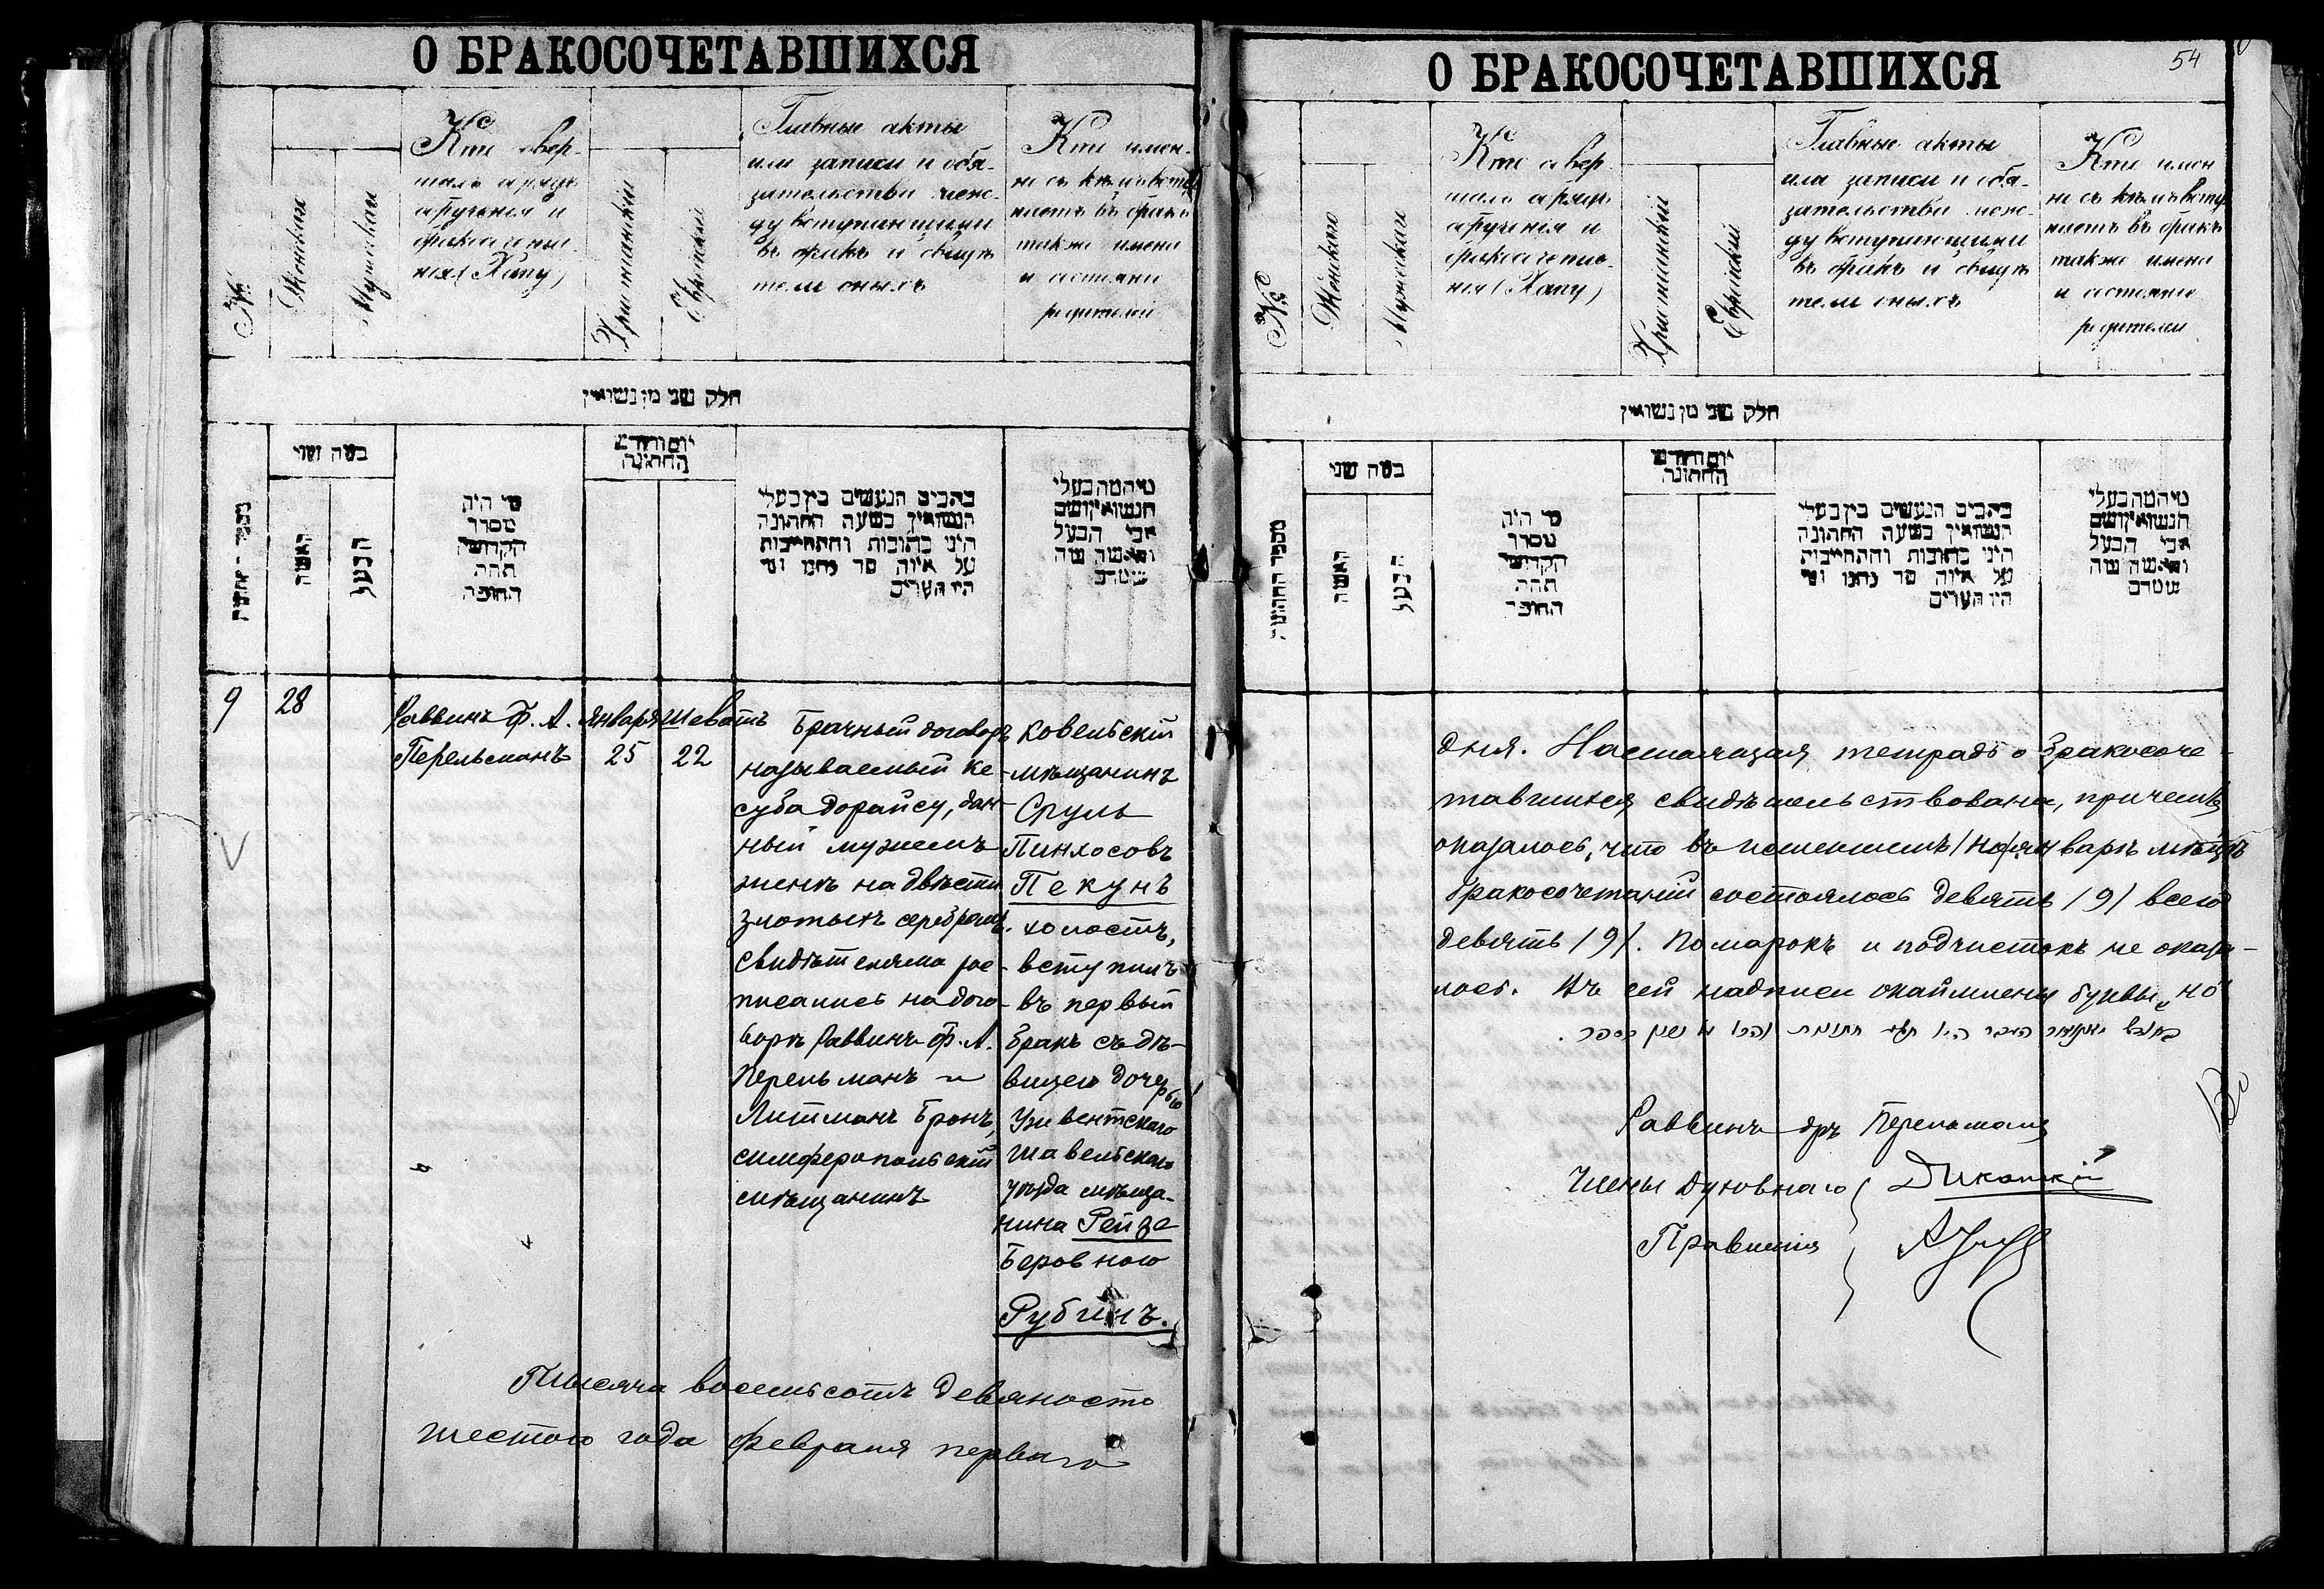 О БРАКОСОЧЕТАВШИХСЯ
№
Женская
Мужская
Кто совер-
шалъ обрядъ
обрученія и
бракосочета-
нія (Хапу)
Христіанскій
Еврейскій
Главные акты
или записи и обя-
зательства меж-
ду вступающими
въ бракъ и свидѣ-
тели оныхъ
Кто имен-
но съ кѣмъ всту-
паетъ въ бракъ
также имена
и состояніе
родителей
חלק שני מן נשואין
מספר
האשה
הבעל
כמה שני
מי היה
מסדר
הקדושי
תחת
החופה
יום וחודש
החתונה
כתבים הנעשים בין בעלי
הנשואין בשעה החתונה
היינו כתובות והתחייבות
על איזה סך נתנו ומי
היו העדים
מי המה בעלי
הנשואין ושם
אבי הבעל
והאשה
9
28
Раввинъ Ф. А.
Перельманъ
Января
25
Шеватъ
22
Брачный договоръ
называемый ке-
суба дорайсу, дан-
ный мужемъ
женѣ на двѣсти
злотыхъ серебромъ.
Свидѣтелями рос-
писались на дого-
ворѣ Раввинъ Ф. А.
Перельманъ и
Литманъ Бронъ,
симферопольскій
мѣщанинъ
Ковельскій
мѣщанинъ
Сруль
Пинхосовъ
Пекунъ
холостъ,
вступилъ
въ первый
бракъ съ дѣ-
вицею дочерью
Ужвентскаго
Шавельскаго
уѣзда мѣща-
нина Рейзе
Беровною
Рубинъ.
Тысяча восемьсотъ девяносто
шестого года февраля перваго
54
О БРАКОСОЧЕТАВШИХСЯ
№
Женская
Мужская
Кто совер-
шалъ обрядъ
обрученія и
бракосочета-
нія (Хапу)
Христіанскій
Еврейскій
Главные акты
или записи и обя-
зательства меж-
ду вступающими
въ бракъ и свидѣ-
тели оныхъ
Кто имен-
но съ кѣмъ всту-
паетъ въ бракъ
также имена
и состояніе
родителей
חלק שני מן נשואין
מספר החתונה
האשה
הבעל
כמה שני
מי היה
מסדר
הקדושי
תחת
החופה
יום וחודש
החתונה
כתבים הנעשים בין בעלי
הנשואין בשעה החתונה
היינו כתובות והתחייבות
על איזה סך נתנו ומי
היו העדים
מי המה בעלי
הנשואין ושם
אבי הבעל
והאשה
дня. Настоящая тетрадь о бракосоче-
тавшихся свидѣтельствована, причемъ
оказалось, что въ истекшемъ (но) январѣ мѣсяцѣ
бракосочетаній состоялось девять /9/ всего
девять /9/. Помарокъ и подчистокъ не оказа-
лось. Въ сей надписи окаймлены буквы „но“
Раввинъ дръ Перельманъ
Члены Духовнаго
Правленія